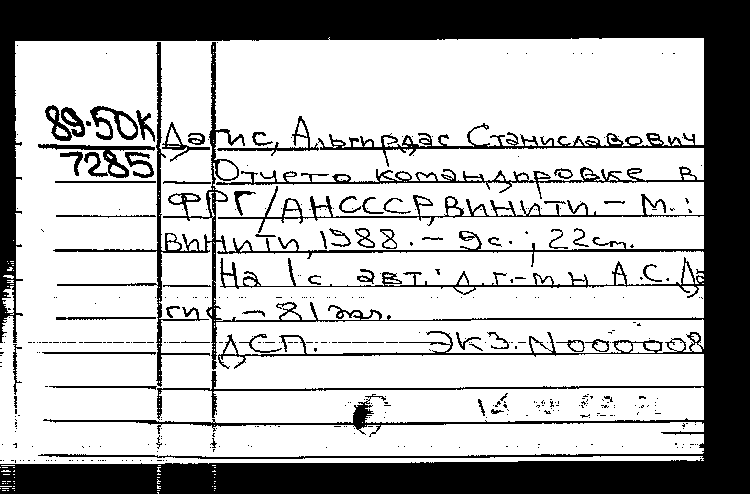 89-50К Дагис, Альгирдас Станиславович
7285 Отчет о командировке в
ФРГ/АНСССР, ВИНИТИ. - М.:
ВИНИТИ, 1988. - 9с.; 22см.
На 1с. авт.: д.г.-м.н А.С.Да
гис. - 81 экз.
ДСП. ЭКЗ.N000008